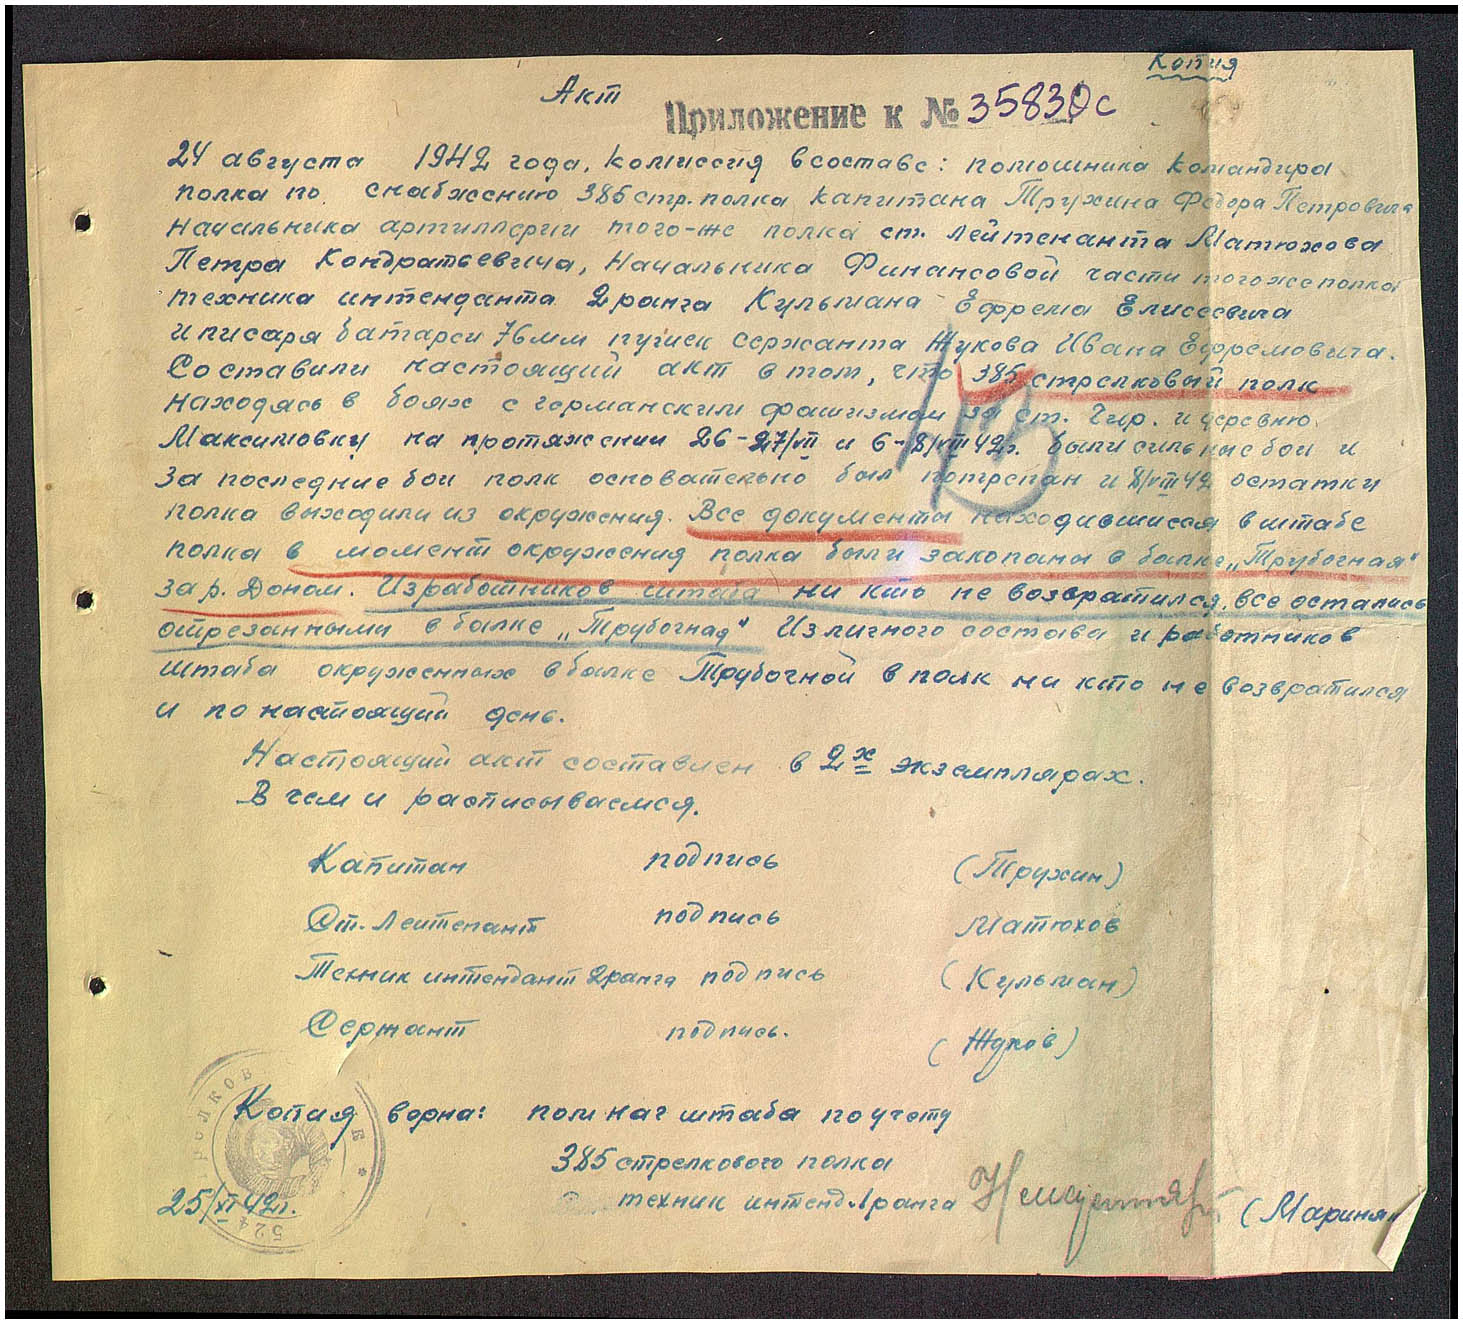 Копия
Акт
Приложение к № 35830с
24 августа 1942 года, комиссия в составе: помошника командира
полка по снабжению 385 стр. полка капитана Трухина Федора Петровича
Начальника артиллерии того-же полка ст. лейтенанта Матюхова
Петра Кондратьевича, Начальника Финансовой части того же полка
техника интенданта 2 ранга Кульмана Ефрема Елисеевича
и писаря батареи 76 мм пушек сержанта Жукова Ивана Ефремовича.
Составили настоящий акт в том, что 385 стрелковый полк
находясь в боях с германским фашизмом за ст. Чир. и деревню
Максимовку на протяжении 26-27/VII и 6-8/VIII 42г. были сильные бои и
за последние бои полк основательно был потрепан и 8/VIII 42 остатки
полка выходили из окружения. Все документы находившиеся в штабе
полка в момент окружения полка были закопаны в балке „Трубочная"
за р. Доном. Из работников штаба ни кто не возвратился, все остались
отрезанными в балке „Трубочная" Из личного состава и работников
штаба окруженных в балке Трубочной в полк ни кто не возвратился
и по настоящий день.
Настоящий акт составлен в 2х экземплярах.
В чем и расписываемся.
Капитан подпись (Трухин)
Ст. Лейтенант подпись Матюхов
Техник интендант 2 ранга подпись (Кульман)
Сержант подпись. (Жуков)
Копия верна: пом нач штаба по учету
385 стрелкового полка
25/XI 42г. техник интенд. 1 ранга (Мариня
524